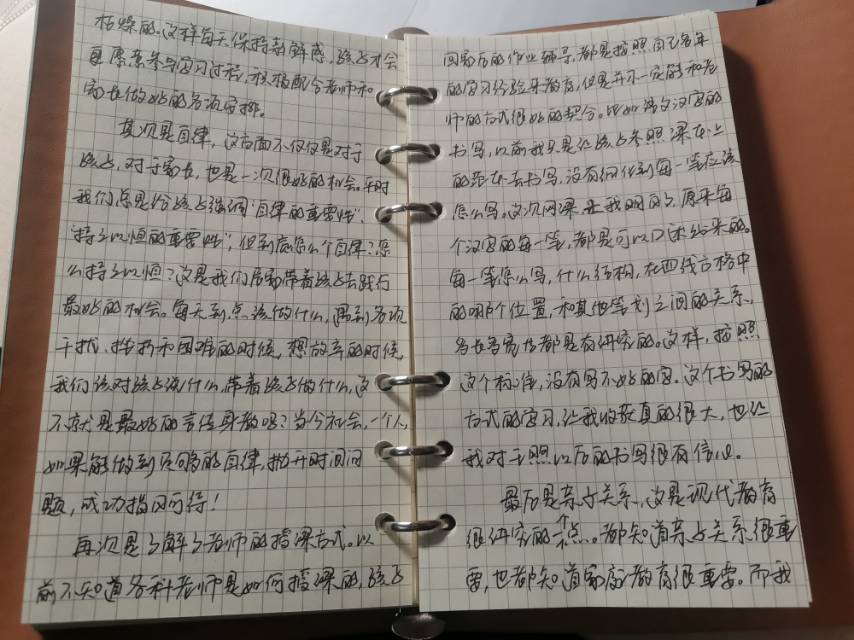 枯燥的。这样每天保持新鲜感，孩子才会
更愿意参与学习过程，积极配合老师和
家长做好的各项安排。
其次是自律，这方面不仅仅是对于
孩子，对于家长，也是一次很好的机会。平时
我们总是给孩子强调"自律的重要性"，
"持之以恒的重要性"，但到底怎么个自律？怎
么持之以恒？这是我们后期带着孩子去践行
最好的机会。每天到点该做什么，遇到各项
干扰、挫折和困难的时候，想放弃的时候，
我们该对孩子说什么，带着孩子做什么，这
不就是最好的言传身教吗？当今社会，一个人，
如果能做到足够的自律，抛开时间问
题，成功指日可待！
再次是了解了老师的授课方式。以
前不知道各科老师是如何授课的，孩子
回家后的作业辅导，都是按照自己多年
的学习经验来教育，但是并不一定能和老
师的方式很好的契合。比如语文汉字的
书写，以前我只是让孩子参照课本上
的距离去书写，没有细化到每一笔应该
怎么写。这次网课让我明白了，原来每
个汉字的每一笔，都是可以口述出来的。
每一笔怎么写，什么结构，在四线方格中
的哪个位置，和其他笔划之间的关系，
多长多高等都是有研究的。这样，按照
这个标准，没有写不好的字。这个书写的
方式的学习，让我收获真的很大，也让
我对于照以后的书写很有信心。
最后是亲子关系，这是现代教育
很研究的个点。都知道亲子关系很重
要，也都知道家庭教育很重要。而我